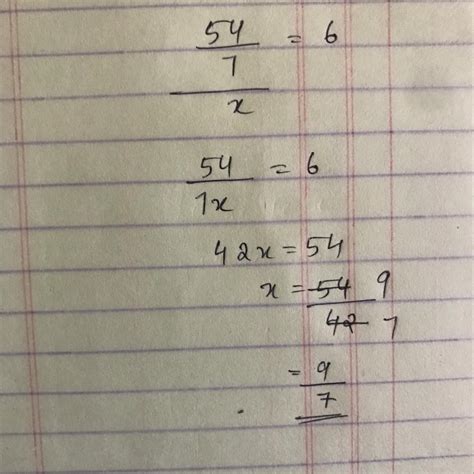 54/7/x = 6
54/7x = 6
42x = 54
x = 54/42 9/7
= 9/7